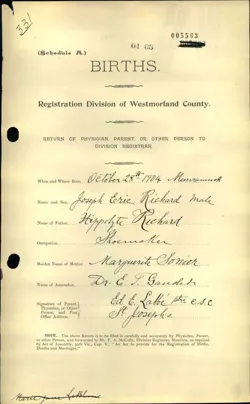 331
(Schedule A.)
01 05
005503
BIRTHS.
Registration Division of Westmorland County.
RETURN OF PHYSICIAN, PARENT, OR OTHER PERSON TO
DIVISION REGISTRAR.
When and Where Born, October 28th 1904 Memramcook
Name and Sex, Joseph Eric Richard male
Name of Father, Hippolyte Richard
Occupation, Shoemaker
Maiden Name of Mother, Marguerite
Name of Accoucheur, Dr. E. T. Gaudet
Signature of Parent,
Physician, or Other
Person, and Post
Office Address:
Ed. E. c.s.c
St Josephs
NOTE. The above Return is to be filled in carefully and accurately by Physician, Parent,
or other Person, and forwarded to Mr. F. A. McCully, Division Registrar, Moncton, as required
by Act of Assembly, 50th Vic., Cap. V., "An Act to provide for the Registration of Births,
Deaths and Marriages."